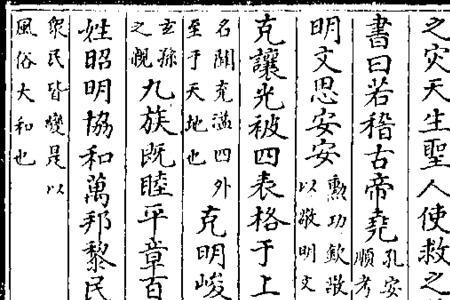 之灾天生聖人使救之
書曰若稽古帝堯孔安
順考
明文思安安勲功欽敬
以敬明文
克讓光被四表格于上
名聞充溢四外
至于天地也克明峻
玄孫
之親九族既睦平章百
姓昭明協和萬邦黎民
衆民皆變是以
風俗大和也